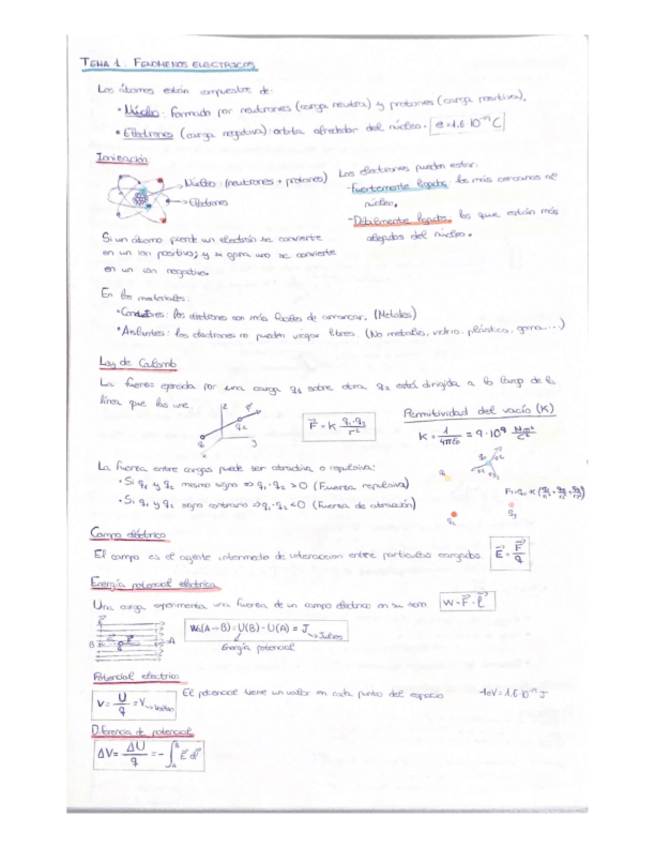 TEMA 1. FENÓMENOS ELÉCTRICOS
Los átomos están compuestos de:
• Núcleo: Formado por neutrones (carga neutra) y protones (carga positiva).
• Electrones (carga negativa): orbita alrededor del núcleo. e = 1,6·10⁻¹⁹ C
Ionización
Núcleo: (neutrones + protones)
Electrones
Los electrones pueden estar:
- Fuertemente ligados: los más cercanos al
núcleo.
- Débilmente ligados: los que están más
alejados del núcleo.
Si un átomo pierde un electrón se convierte
en un ion positivo; y si gana uno se convierte
en un ion negativo.
En los materiales:
• Conductores: los electrones son más fáciles de arrancar. (Metales)
• Aislantes: los electrones no pueden viajar libres. (No metales, vidrio, plástico, goma,...)
Ley de Coulomb
La fuerza ejercida por una carga q₁ sobre otra q₂ está dirigida a lo largo de la
línea que las une.
z
F
q₂
q₁
y
x
F = K q₁·q₂ / r²
Permitividad del vacío (K)
K = 1/4πε₀ = 9·10⁹ N·m²/C²
La fuerza entre cargas puede ser atractiva o repulsiva:
• Si q₁ y q₂ mismo signo ⇒ q₁·q₂ > 0 (Fuerza repulsiva)
• Si q₁ y q₂ signo contrario ⇒ q₁·q₂ < 0 (Fuerza de atracción)
Campo eléctrico
El campo es el agente intermedio de interacción entre partículas cargadas.
E = F/q
Energía potencial eléctrica
Una carga experimenta una fuerza de un campo eléctrico en su
W = F·l
B
A
(A→B) = U(B) - U(A) = J → Julios
Energía potencial
Potencial eléctrico
V = U/q = V → Voltios
El potencial tiene un valor en cada punto del espacio
1eV = 1.6·10⁻¹⁹ J
Diferencia de potencial
ΔV = ΔU/q = - ∫ₐᴮ E dl